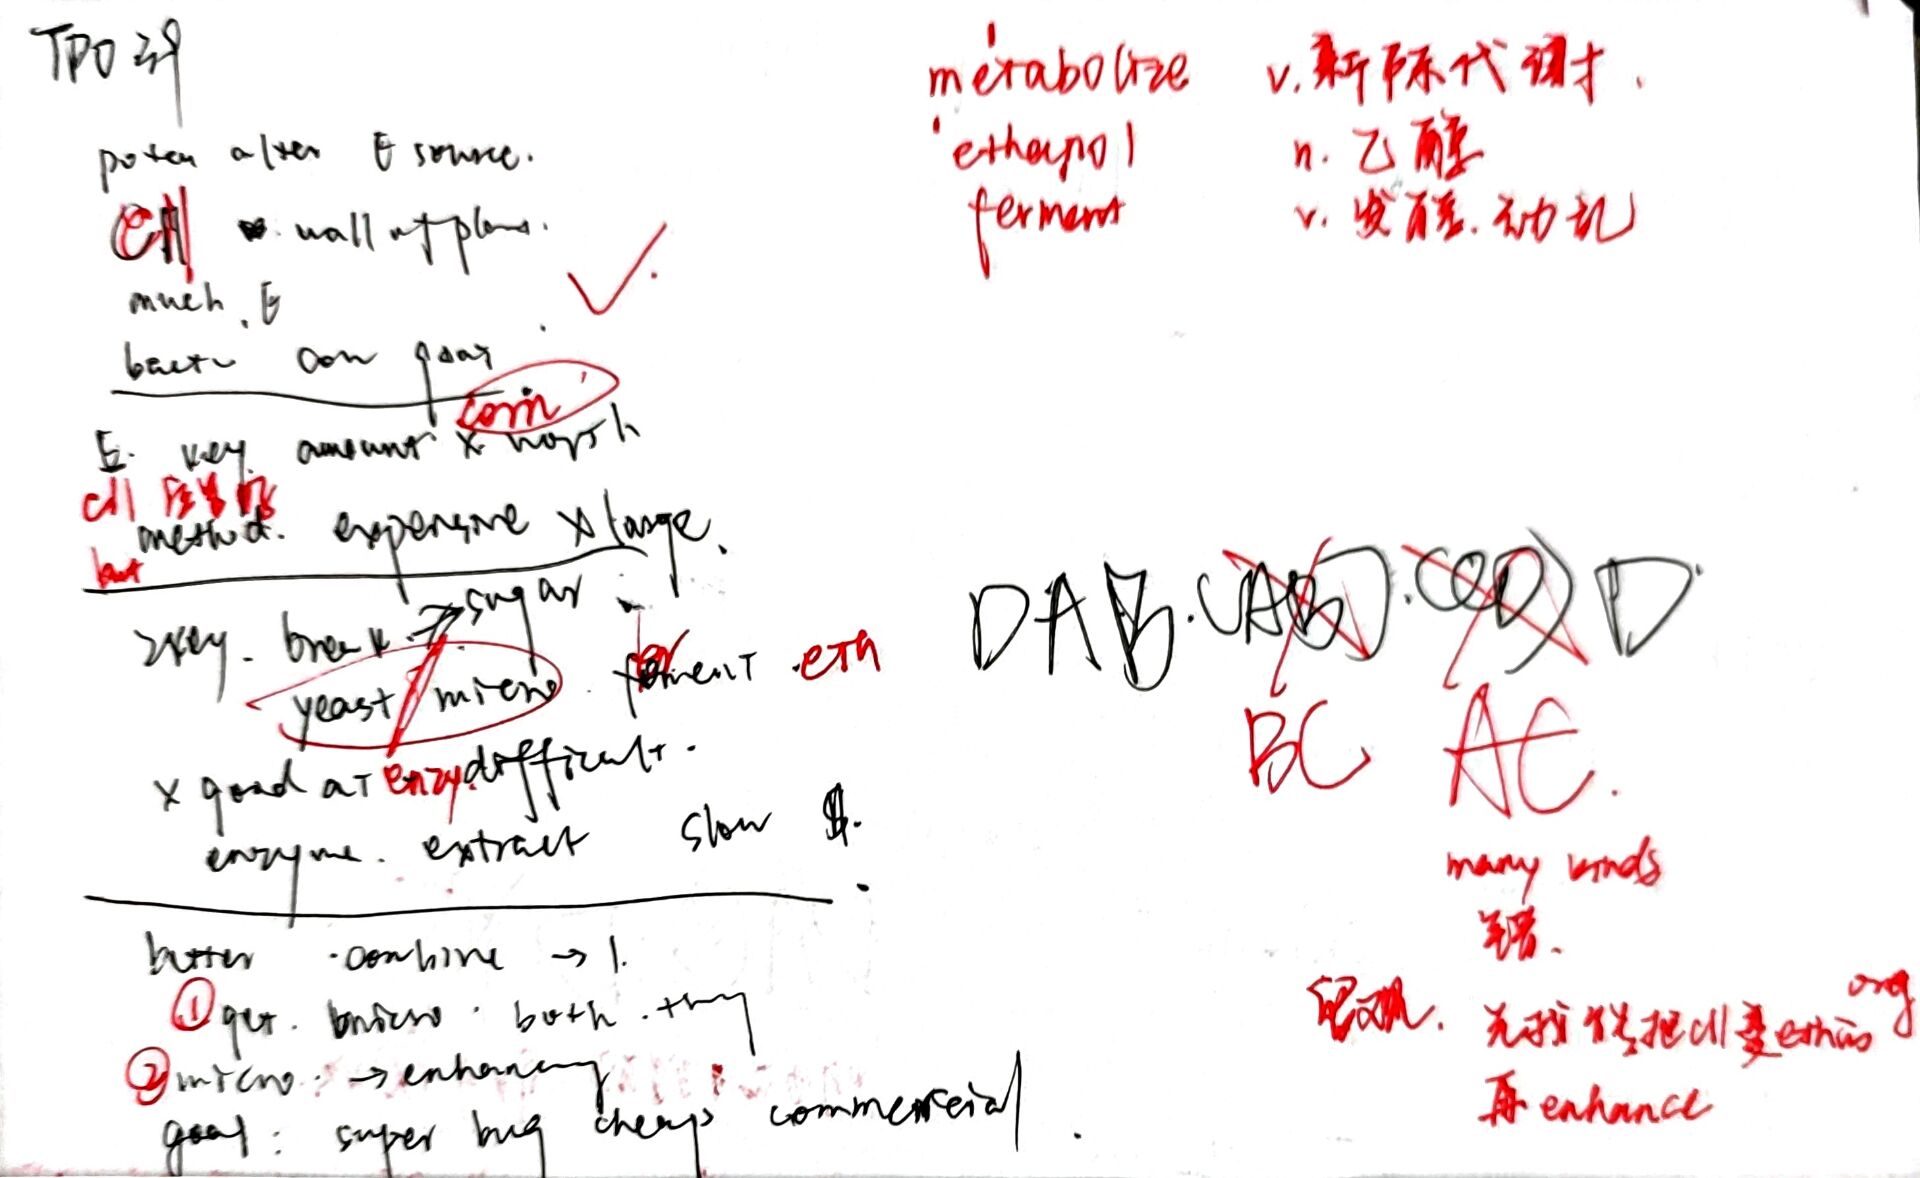 TPO
poten alter E source.
cell wall of plan.
much. E
bact cow goat
corn
E. key amount x harsh
cell
method. expensive x large.
but
2key. break → sugar
yeast / micro. ferment. eth
x good at enzy. difficult.
enzyme. extract slow $.
better combine → 1.
① get. micro. both. thing
② micro. → enhancing
goal: super bug cheap commercial.
metabolize v. 新陈代谢.
ethanol n. 乙醇
ferment v. 发酵. 动乱
DAB. (AB). (CD) D
BC AC.
many kinds
错.
先找 把cell变 ethnis org
再 enhance